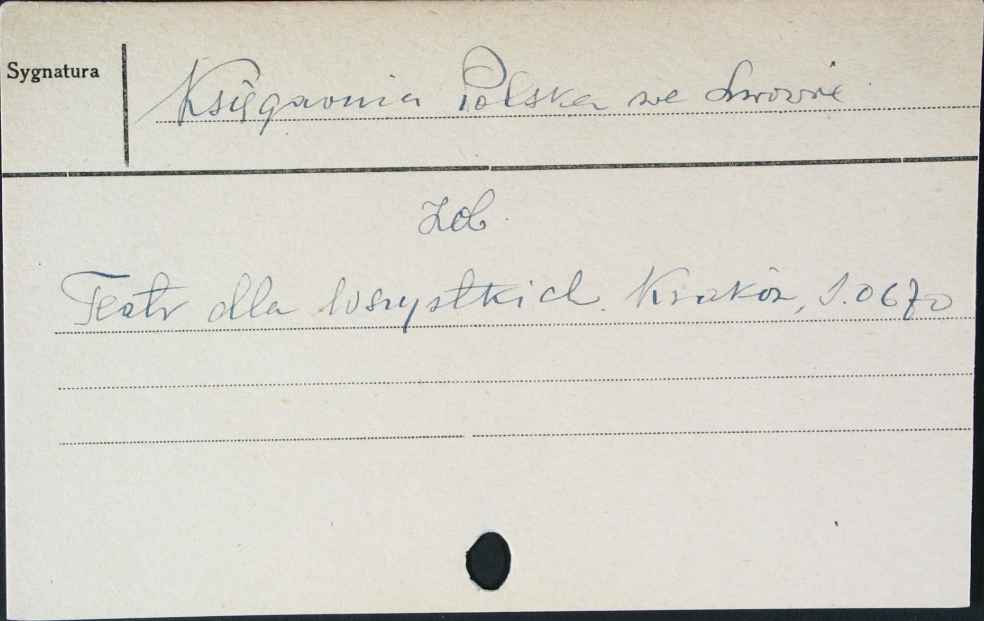 Sygnatura
Księgarnia Polska we Lwowie
Zob.
Teatr dla Wszystkich. Kraków, S.0670